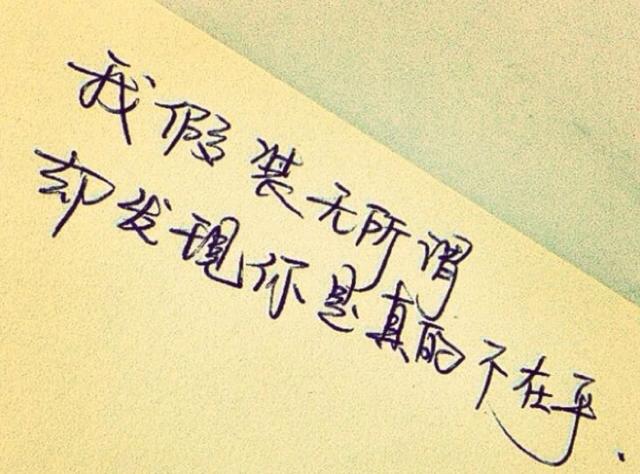 我假装无所谓
却发现你是真的不在乎.